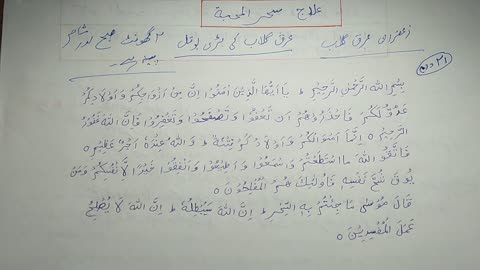 علاج سحر المحبة
زعفرانی عرق گلاب عرق گلاب کی بڑی بوتل ۳ گھونٹ صبح اور شام
پینا ہے۔
۲۱ دن
بِسْمِ اللهِ الرَّحْمٰنِ الرَّحِيْمِ ط يٰاَيُّهَا الَّذِيْنَ اٰمَنُوْا اِنَّ مِنْ اَزْوَاجِكُمْ وَ اَوْلَادِكُمْ
عَدُوًّا لَّكُمْ فَاحْذَرُوْهُمْ وَ اِنْ تَعْفُوْا وَ تَصْفَحُوْا وَ تَغْفِرُوْا فَاِنَّ اللهَ غَفُوْرٌ
الرَّحِيْمٌ ه اِنَّمَا اَمْوَالُكُمْ وَ اَوْلَادُكُمْ فِتْنَةٌ ط وَ اللهُ عِنْدَهٗ اَجْرٌ عَظِيْمٌ ه
فَاتَّقُوا اللهَ مَا اسْتَطَعْتُمْ وَ اسْمَعُوْا وَ اَطِيْعُوْا وَ اَنْفِقُوْا خَيْرًا لِّاَنْفُسِكُمْ وَ مَنْ
يُّوْقَ شُحَّ نَفْسِهٖ فَاُولٰٓئِكَ هُمُ الْمُفْلِحُوْنَ ه
قَالَ مُوْسٰى مَا جِئْتُمْ بِهِ السِّحْرُ ط اِنَّ اللهَ سَيُبْطِلُهٗ ط اِنَّ اللهَ لَا يُصْلِحُ
عَمَلَ الْمُفْسِدِيْنَ ه